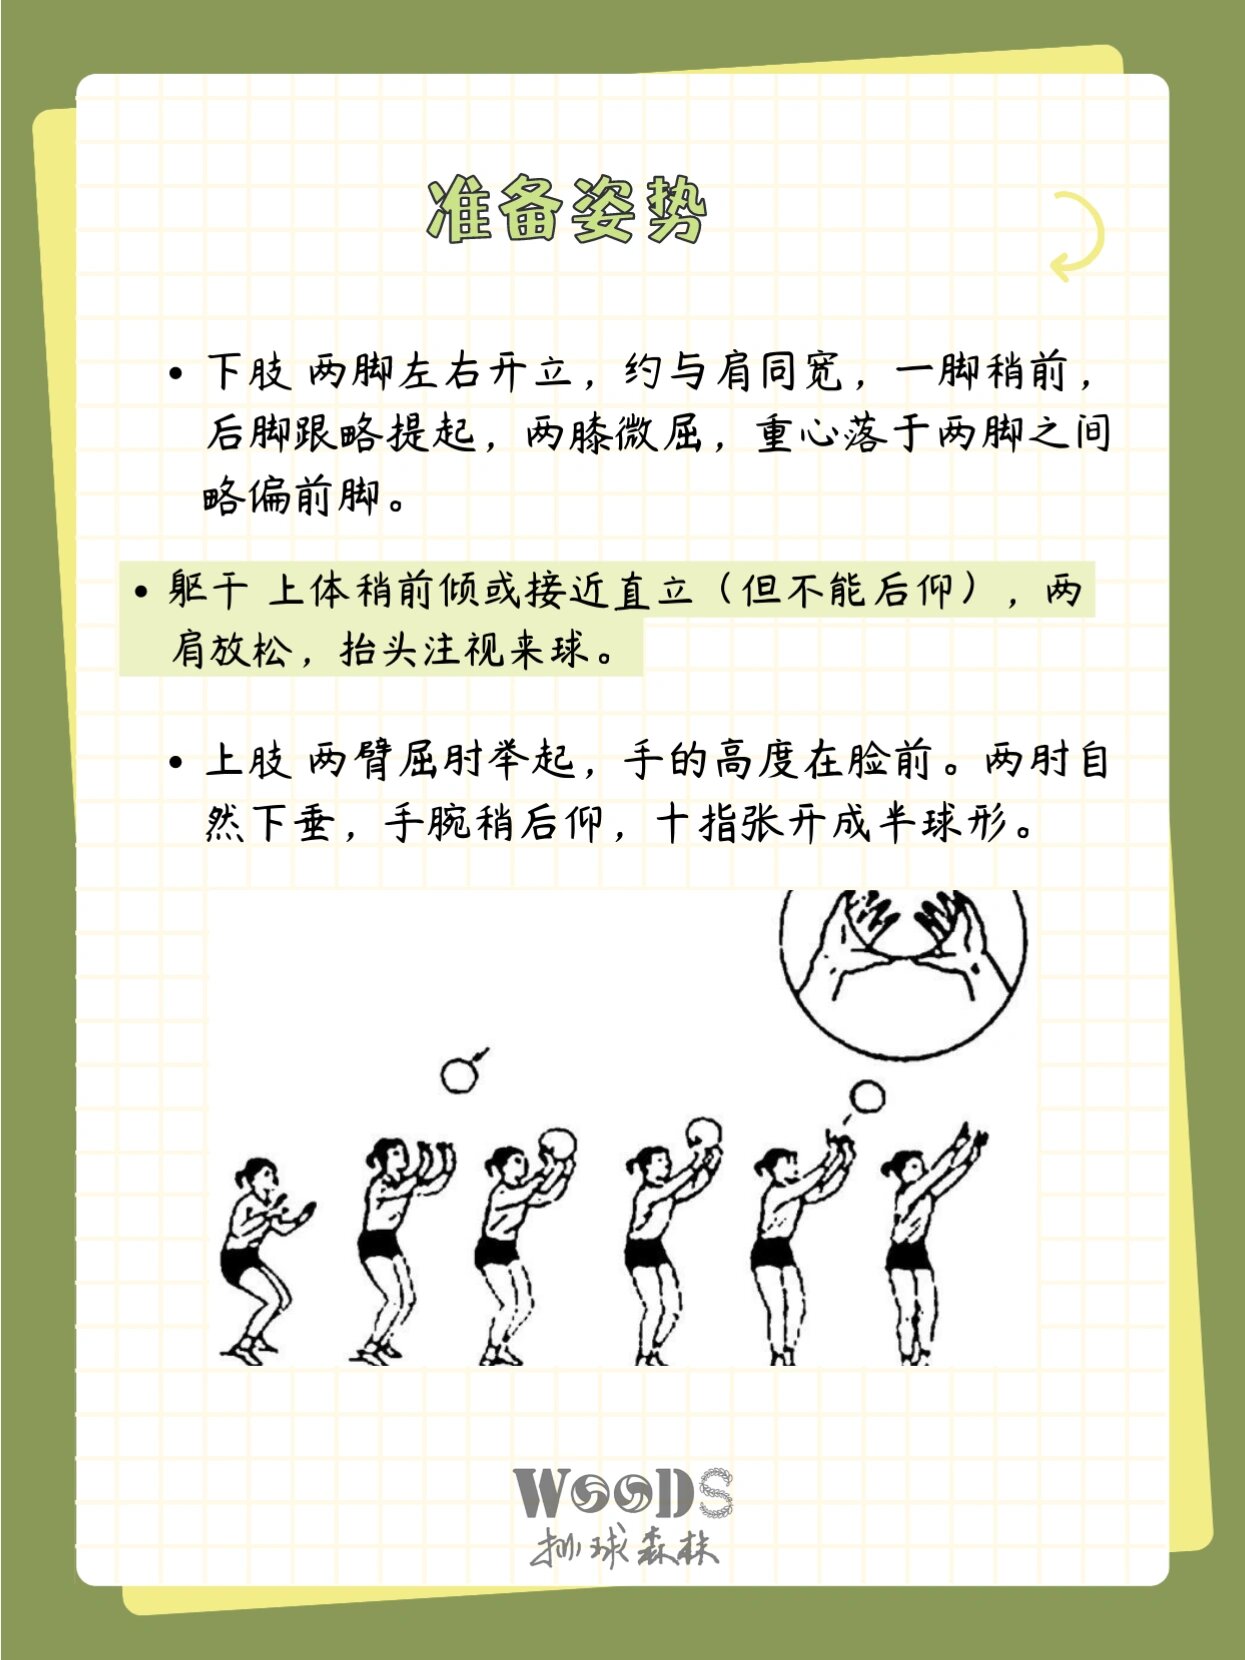 准备姿势
• 下肢 两脚左右开立，约与肩同宽，一脚稍前，
后脚跟略提起，两膝微屈，重心落于两脚之间
略偏前脚。
• 躯干 上体稍前倾或接近直立（但不能后仰），两
肩放松，抬头注视来球。
• 上肢 两臂屈肘举起，手的高度在脸前。两肘自
然下垂，手腕稍后仰，十指张开成半球形。
WOODS
排球森林